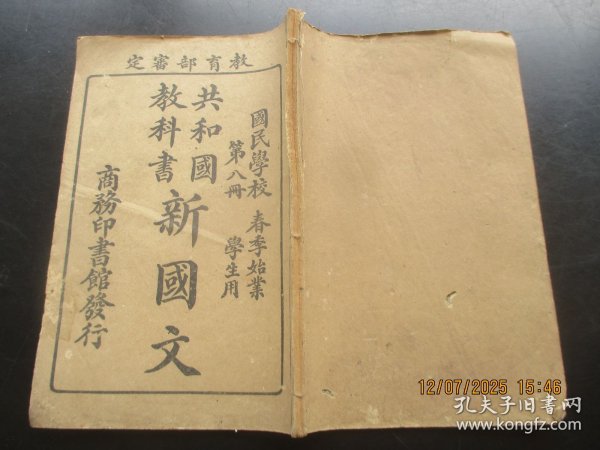 教育部審定
國民學校 春季始業
第八冊 學生用
共和國
教科書
新國文
商務印書館發行
12/07/2025 15:46
孔夫子旧书网
www.kongfz.com